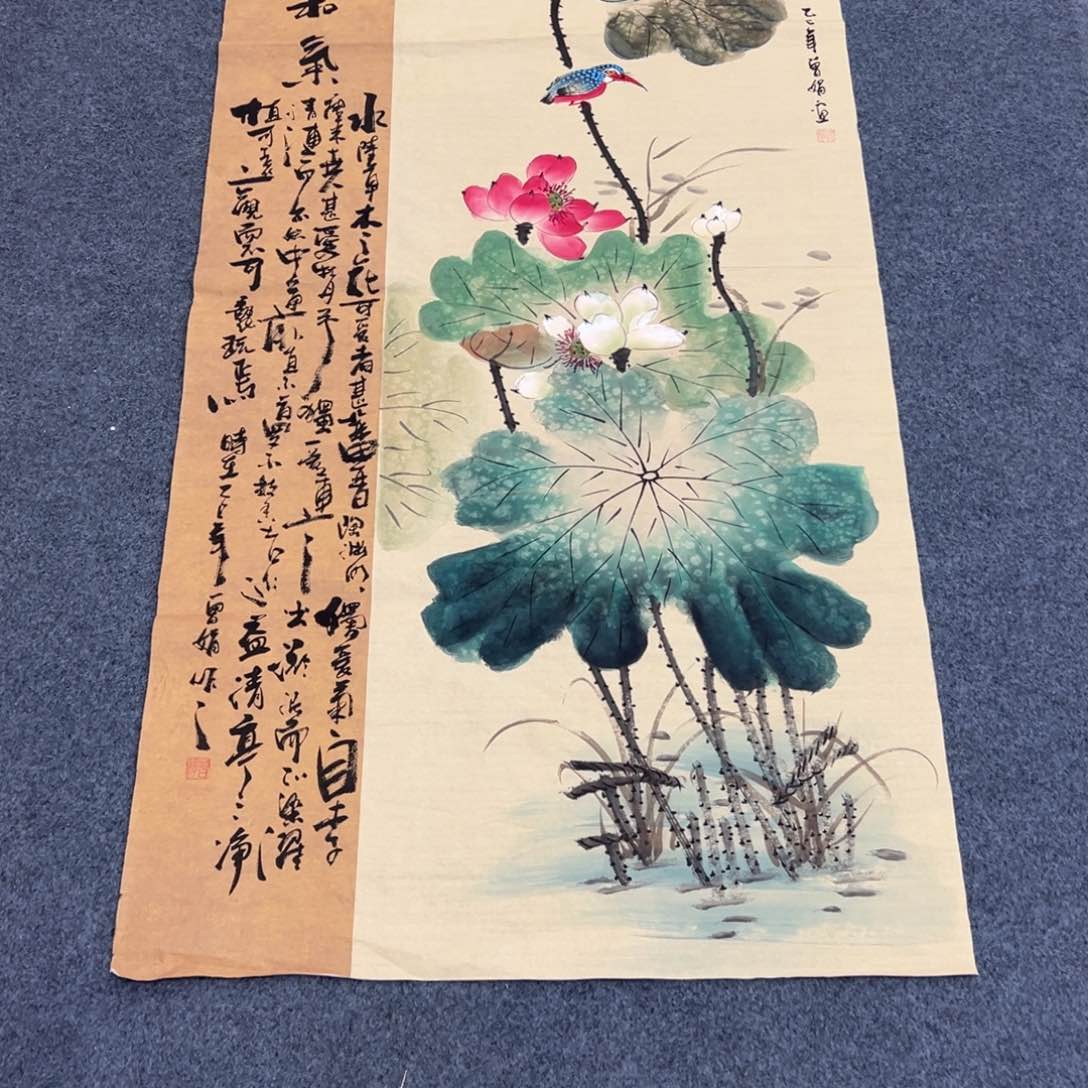 乙巳年曾娟画
和氣
水陸草木之花可爱者甚蕃晋陶渊明獨爱菊自李
唐来世人甚愛牡丹予獨爱蓮之出淤泥而不染濯
清蓮而不妖中通外直不蔓不枝香远益清亭亭净
植可远觀而不可褻玩焉 時在乙巳年曾娟作之